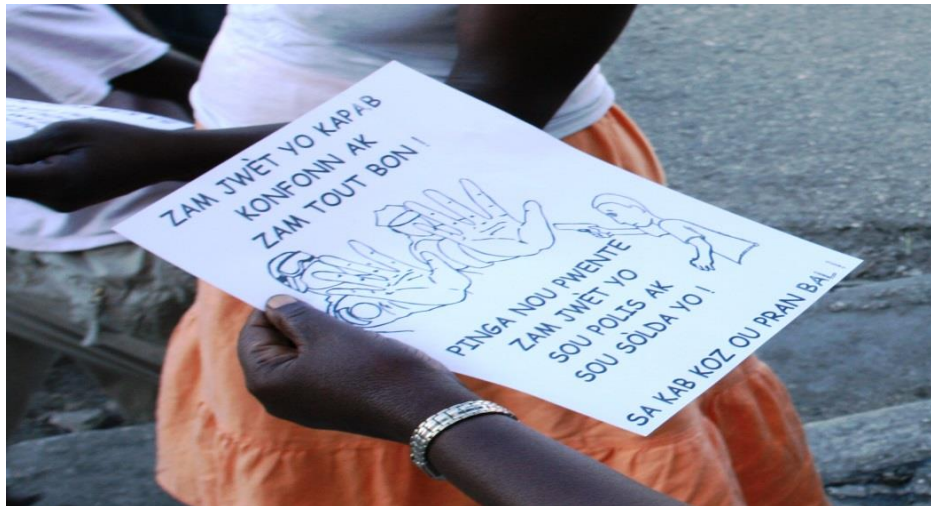 ZAM JWÈT YO KAPAB
KONFONN AK
ZAM TOUT BON !
PINGA NOU PWENTE
ZAM JWÈT YO
SOU POLIS AK
SOU SÒLDA YO !
SA KAB KOZ OU PRAN BAL !